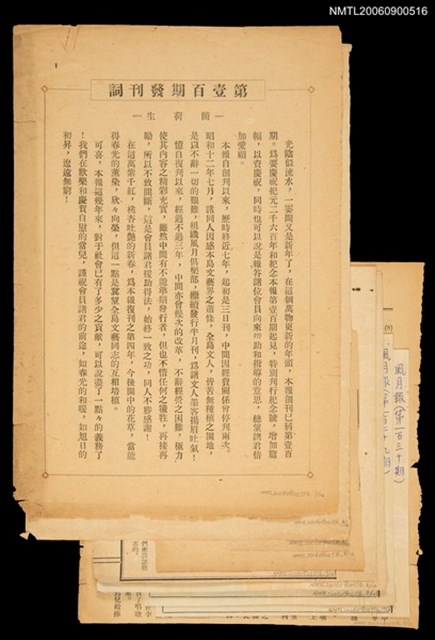 NMTL20060900516
第壹百期發刊詞
—簡荷生—
光陰似流水,一霎間又是新年了,在這個萬物更新的年頭,本報創刊已屆第壹百
期。爲要慶祝紀元二千六百年和紀念本報第壹百期起見,特別刊行紀念號,增加篇
幅,以資慶祝,同時也可以說是報答諸位會員向來贊助和指導的意思,總望諸君倍
加愛顧。
本報自創刊以來,歷時將近七年,起初是三日刊,中間因經費關係曾停刊兩次。
昭和十二年七月,諸同人因感本島文藝界之蕭條,全島文人,皆苦無種植之園地,
是以不辭一切的艱難,組織風月俱樂部,繼續發行半月刊,爲諸文人墨客揚眉吐氣!
憶自復刊以來,經過不過三年,中間亦曾幾次的改革,不辭經營之困難,極力
使其內容之精彩充實,雖然中間有不能準期發行者,但也不惜任何之犧牲,再接再
勵,所以不致間斷,這是會員諸君援助得法,始終一致之功。同人不勝感謝!
在這萬紫千紅,桃杏吐艷的新春,爲本報復刊之第四年,今後園中的花草,當能
得春光的薰染,欣々向榮,但這一點是冀望全島文藝同志的互相培植。
可喜。本報這幾年來,對于社會已有了多少之貢獻,可以說盡了一點々的義務了
!我們在歡樂和慶賀自慰的當兒,謹祝會員諸君的前途,如春光的和暖,如旭日的
初昇,遼遠無窮!
風月報(第一百三十期)